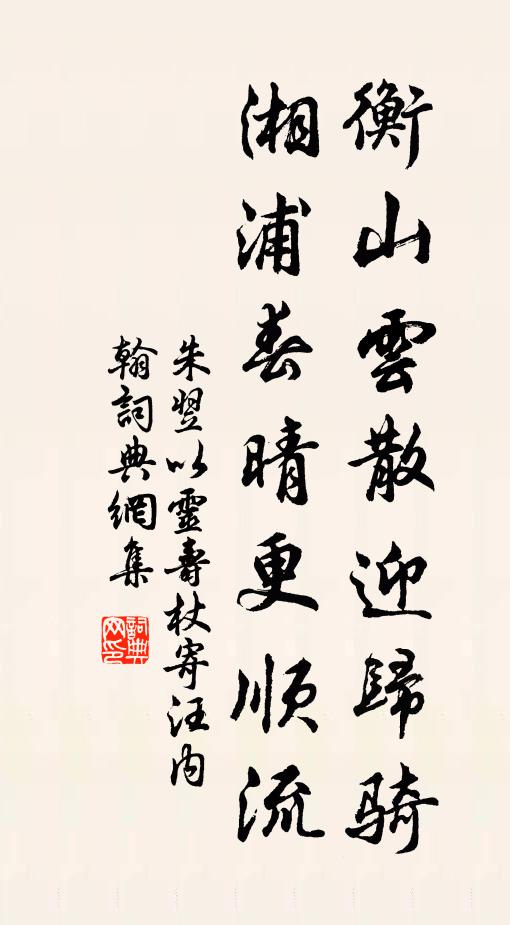 衡山雲散迎歸騎
湘浦春晴更順流
朱翌以靈壽杖寄汪内
翰詞典網集
詞典
网印